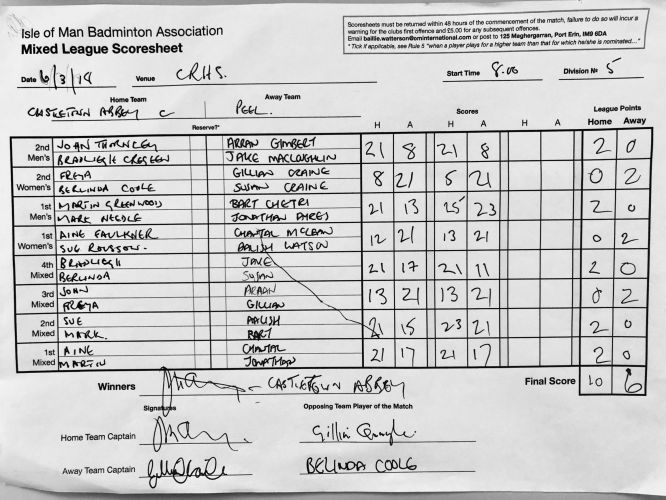 Isle of Man Badminton Association
Mixed League Scoresheet
Scoresheets must be returned within 48 hours of the commencement of the match, failure to do so will incur a
warning for the clubs first offence and £5.00 for any subsequent offences.
Email bailie.watterson@ominternational.com or post to 125 Maghergarran, Port Erin, IM9 6DA
* Tick if applicable, see Rule 5 "when a player plays for a higher team than that for which he/she is nominated..."
Date 6/3/19 Venue CRHS. Start Time 8.00 Division No 5
Home Team Away Team
CASTLETOWN ABBEY C PEEL
Reserve?* Scores League Points
H A H A H A Home Away
2nd Men's JOHN THORNLEY ARRAN GIMBERT 21 8 21 8 2 0
BRADLIEGH CREGEEN JAKE MACLOUGHLIN
2nd Women's FREYA GILLIAN CRAINE 8 21 5 21 0 2
BERLINDA COOLE SUSAN CRAINE
1st Men's MARTIN GREENWOOD BART CHETRI 21 13 25 23 2 0
MARK NEEDLE JONATHAN
1st Women's AINE FAULKNER CHANTAL MCLEAN 12 21 13 21 0 2
SUE AALISH WATSON
4th Mixed BRADLIEGH JAKE 21 17 21 11 2 0
BERLINDA SUSAN
3rd Mixed JOHN ARRAN 13 21 13 21 0 2
FREYA GILLIAN
2nd Mixed SUE AALISH 21 15 23 21 2 0
MARK. BART
1st Mixed AINE CHANTAL 21 17 21 17 2 0
MARTIN JONATHAN
Winners CASTLETOWN ABBEY Final Score 10 6
Signatures Opposing Team Player of the Match
Home Team Captain
Away Team Captain BELINDA COOLE